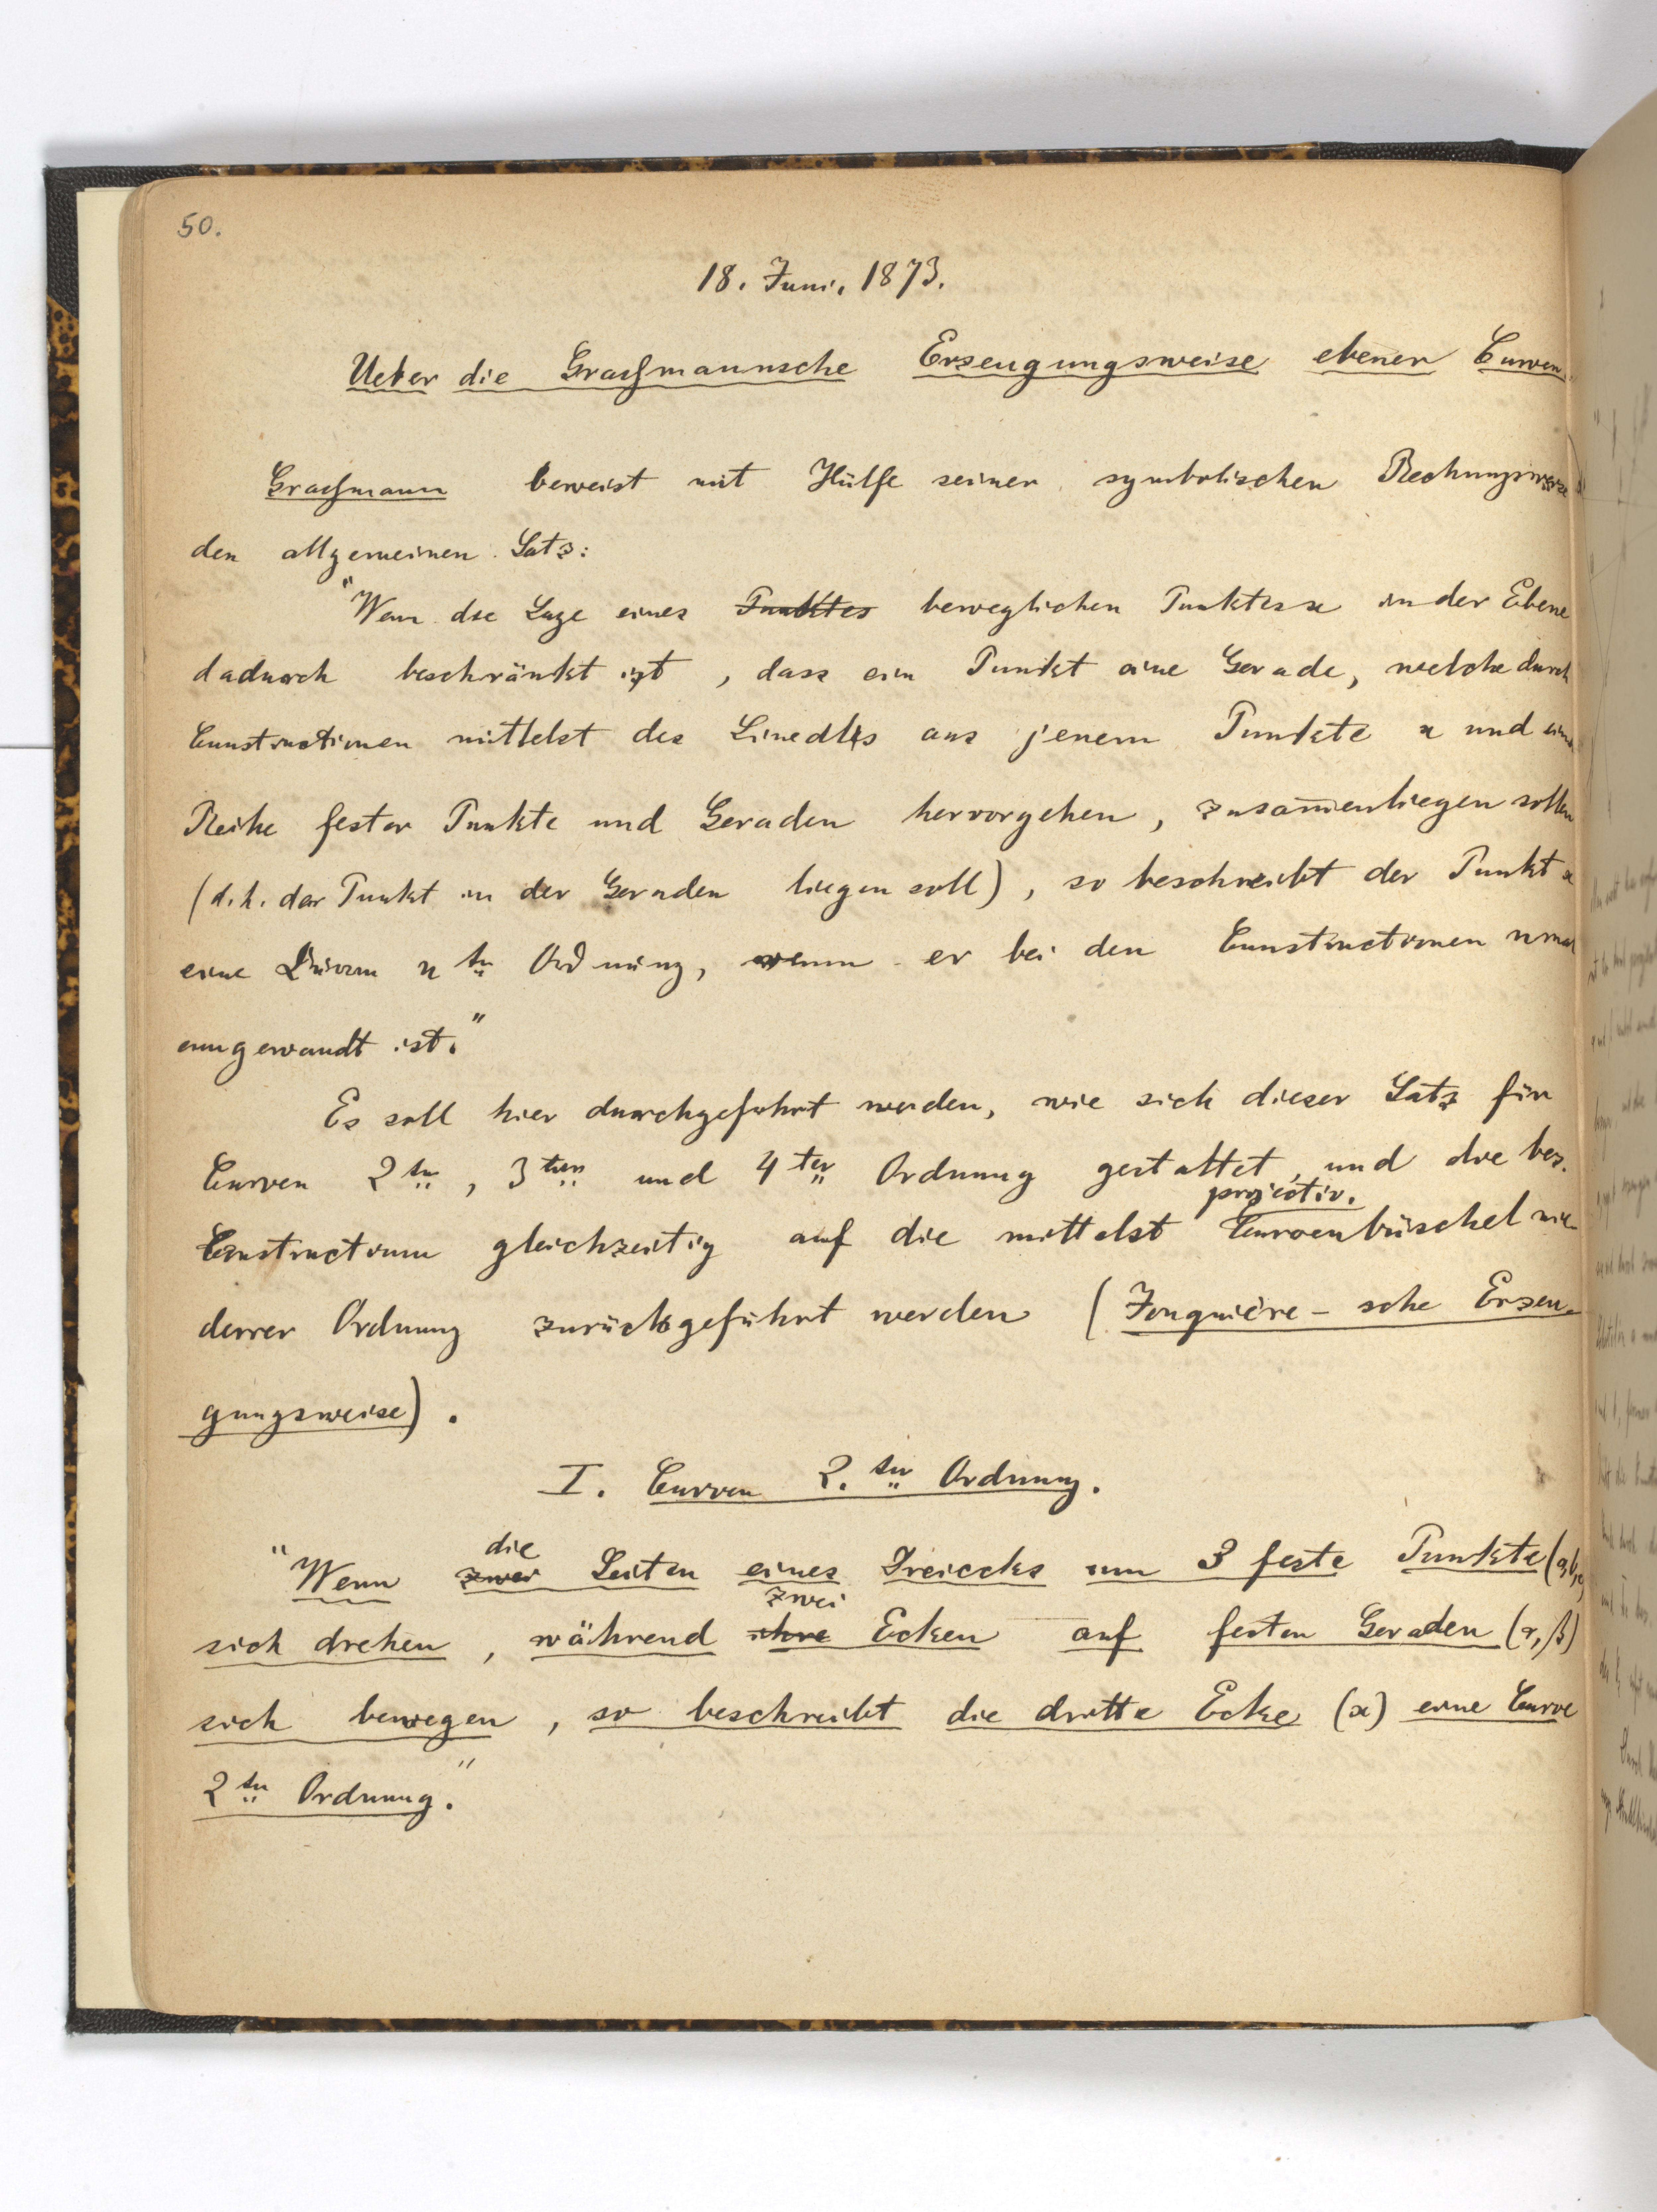 50.
18. Juni. 1873.
Ueber die Graßmannsche Erzeugungsweise ebener Curven.
Graßmann beweist mit Hülfe seiner symbolischen Rechnungsweise
den allgemeinen Satz:
"Wenn die Lage eines Punktes beweglichen Punktes x in der Ebene
dadurch beschränkt ist, dass ein Punkt eine Gerade, welche durch
Constructionen mittelst des Lineals aus jenem Punkte x und einer
Reihe fester Punkte und Geraden hervorgehen, zusam̄enliegen sollen
(d.h. der Punkt in der Geraden liegen soll), so beschreibt der Punkt x
eine Curve n ter Ordnung, wenn er bei den Constructionen n mal
angewandt ist."
Es soll hier durchgeführt werden, wie sich dieser Satz für
Curven 2ter, 3ten und 4ter Ordnung gestaltet, und die bez.
projectiv.
Construction gleichzeitig auf die mittelst Curvenbüschel nie-
derer Ordnung zurückgeführt werden (Jonquière-sche Erzeu-
gungsweise).
I. Curven 2.ter Ordnung.
die
"Wenn zwei Seiten eines Dreiecks um 3 feste Punkte (a,b,c)
zwei
sich drehen, während ihre Ecken auf festen Geraden (α, β)
sich bewegen, so beschreibt die dritte Ecke (x) eine Curve
2ter Ordnung."